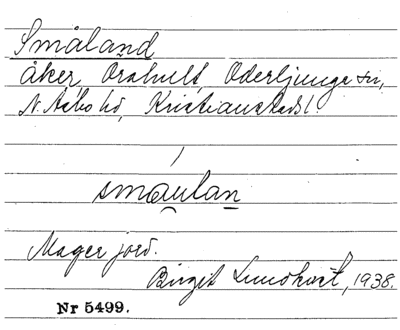 Småland
åker, Orahult, Oderljunga sn,
N. Åsbo hd, Kristianstads l.
smäulan
Mager jord.
Birgit Lundkvist, 1938.
Nr 5499.